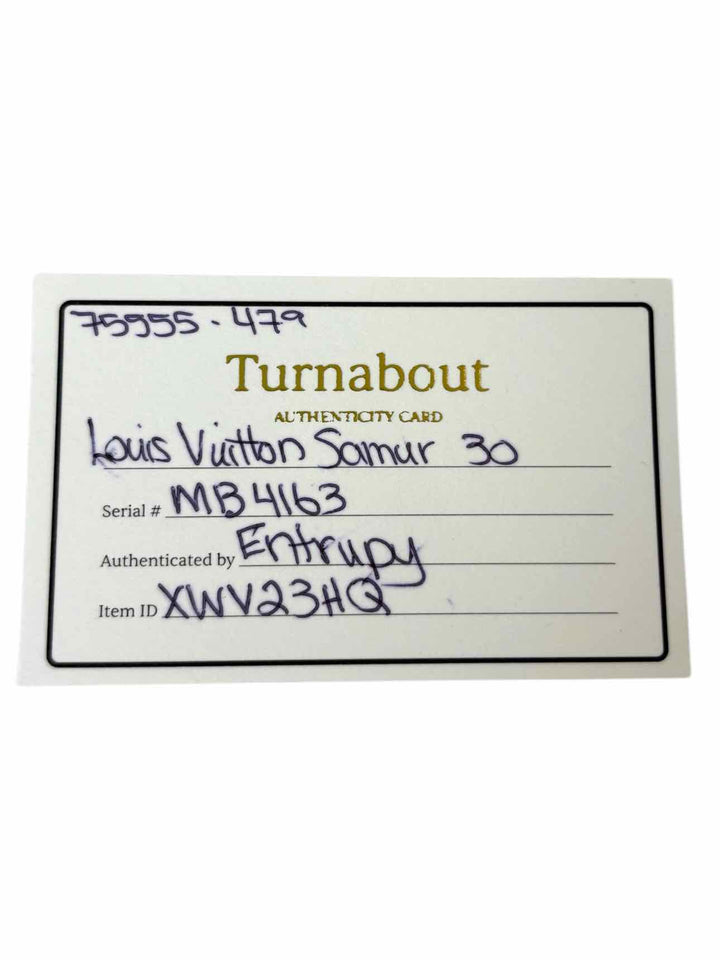 75955-479
Turnabout
AUTHENTICITY CARD
Louis Vuitton Samur 30
Serial # MB4163
Authenticated by Entrupy
Item ID XWV23HQ